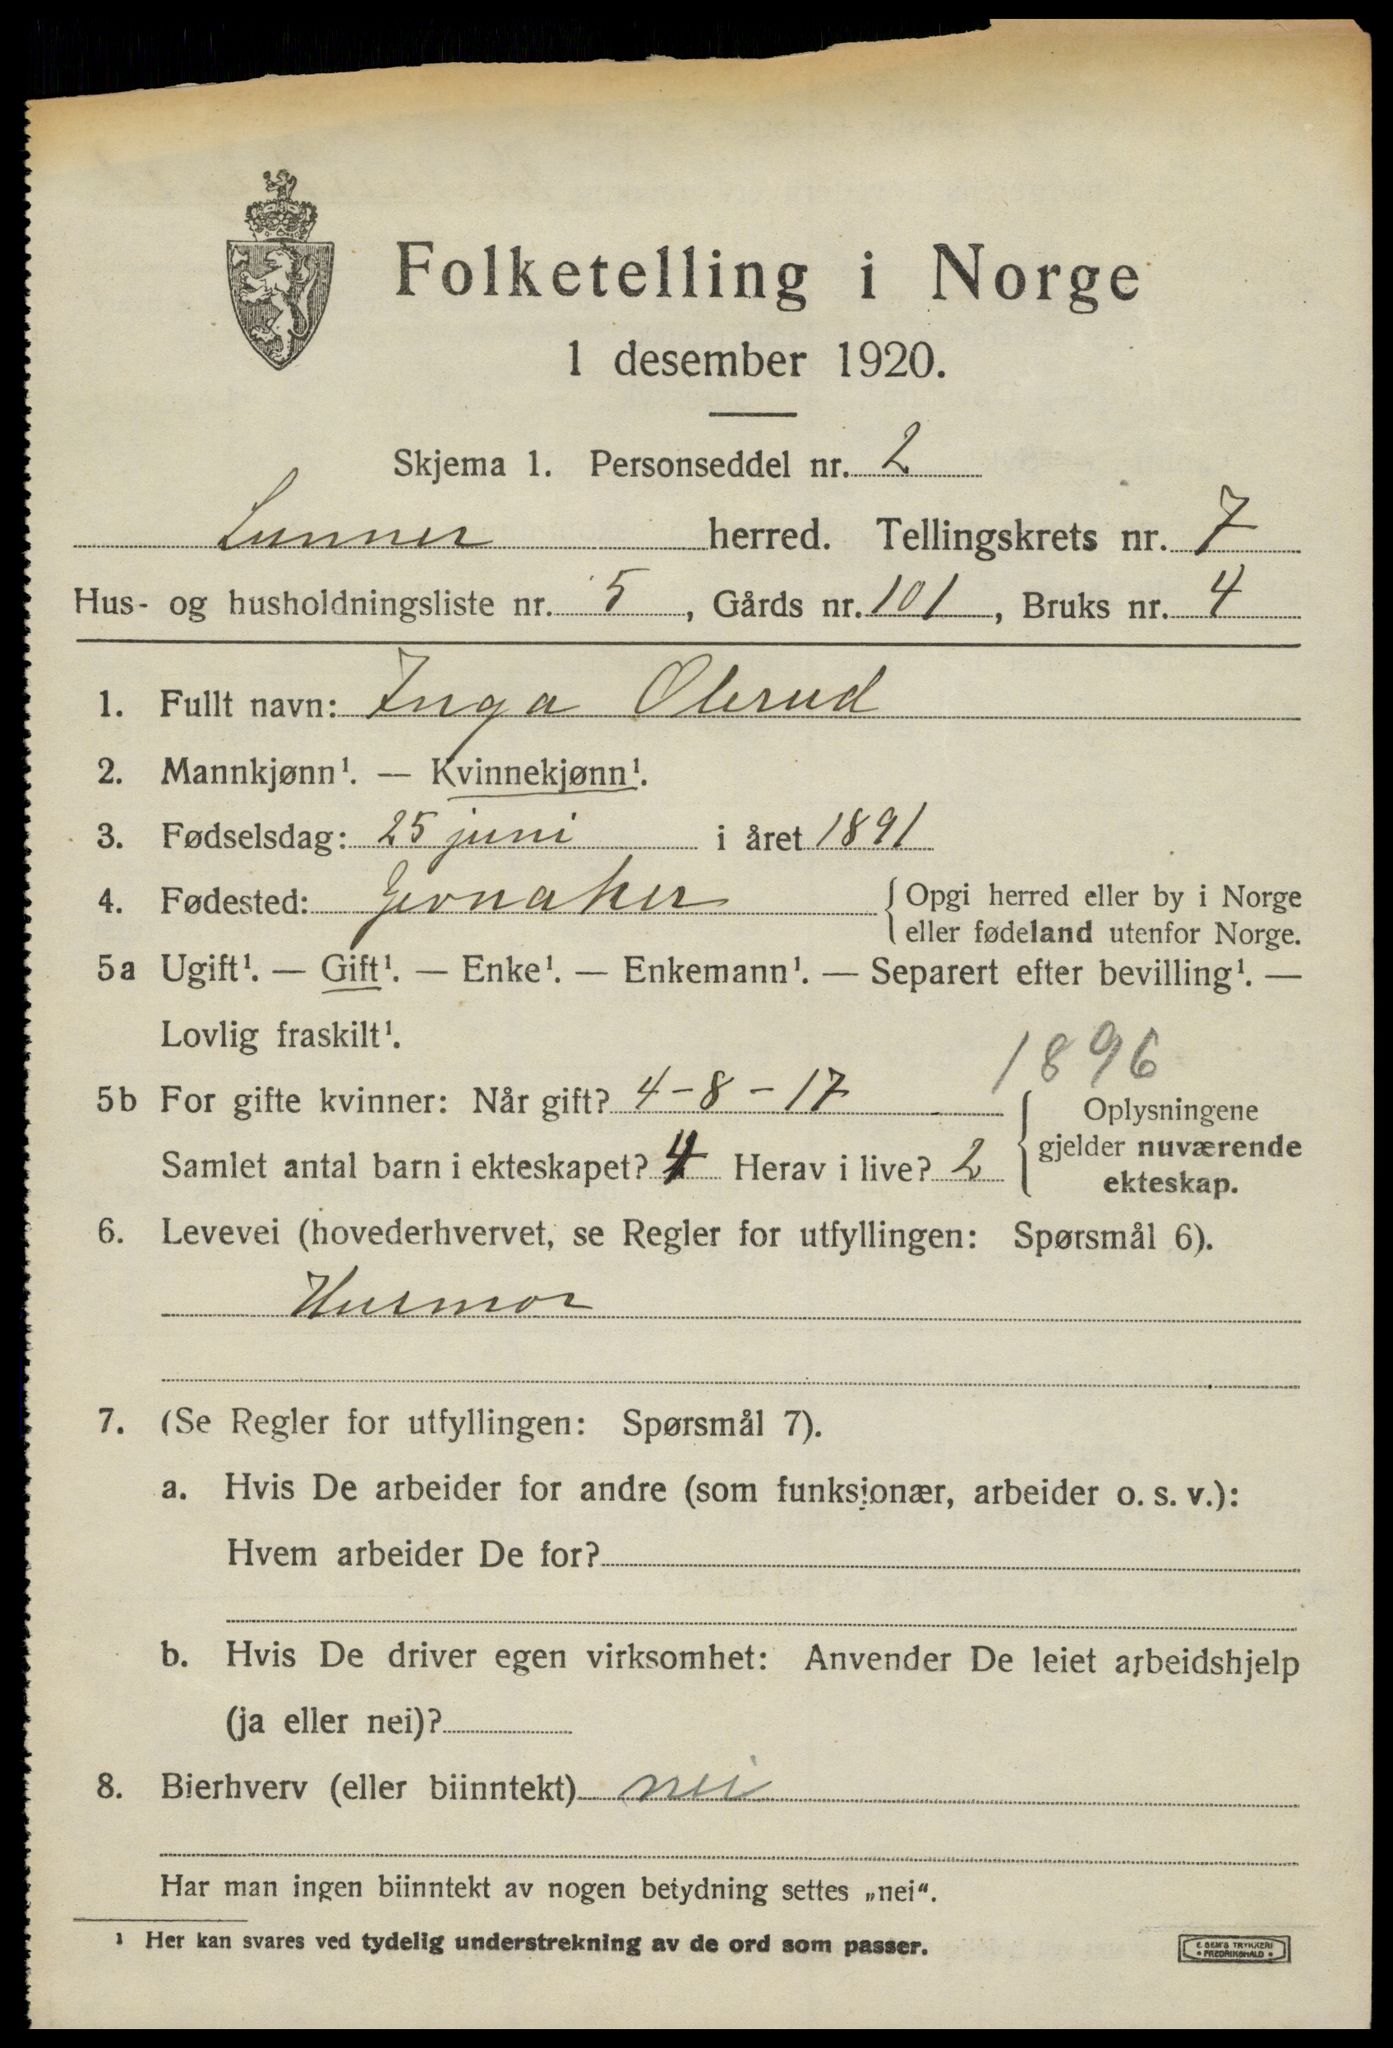 Folketelling i Norge
1 desember 1920.
Skjema 1. Personseddel nr. 2
Lunner herred. Tellingskrets nr. 7
Hus- og husholdningsliste nr. 5, Gårds nr. 101, Bruks nr. 4
1. Fullt navn: Inga Olerud
2. Mannkjønn¹. — Kvinnekjønn¹.
3. Fødselsdag: 25 juni i året 1891
4. Fødested: Jevnaker { Opgi herred eller by i Norge
eller fødeland utenfor Norge.
5a Ugift¹. — Gift¹. — Enke¹. — Enkemann¹. — Separert efter bevilling¹. —
Lovlig fraskilt¹.
1896
5b For gifte kvinner: Når gift? 4-8-17
Samlet antal barn i ekteskapet? 4 Herav i live? 2
{ Oplysningene
gjelder nuværende
ekteskap.
6. Levevei (hovederhvervet, se Regler for utfyllingen: Spørsmål 6).
Husmor
7. (Se Regler for utfyllingen: Spørsmål 7).
a. Hvis De arbeider for andre (som funksjonær, arbeider o. s. v.):
Hvem arbeider De for?
b. Hvis De driver egen virksomhet: Anvender De leiet arbeidshjelp
(ja eller nei)?
8. Bierhverv (eller biinntekt) nei
Har man ingen biinntekt av nogen betydning settes „nei“.
¹ Her kan svares ved tydelig understrekning av de ord som passer.
E. SEM'S TRYKKERI
• FREDRIKSHALD •